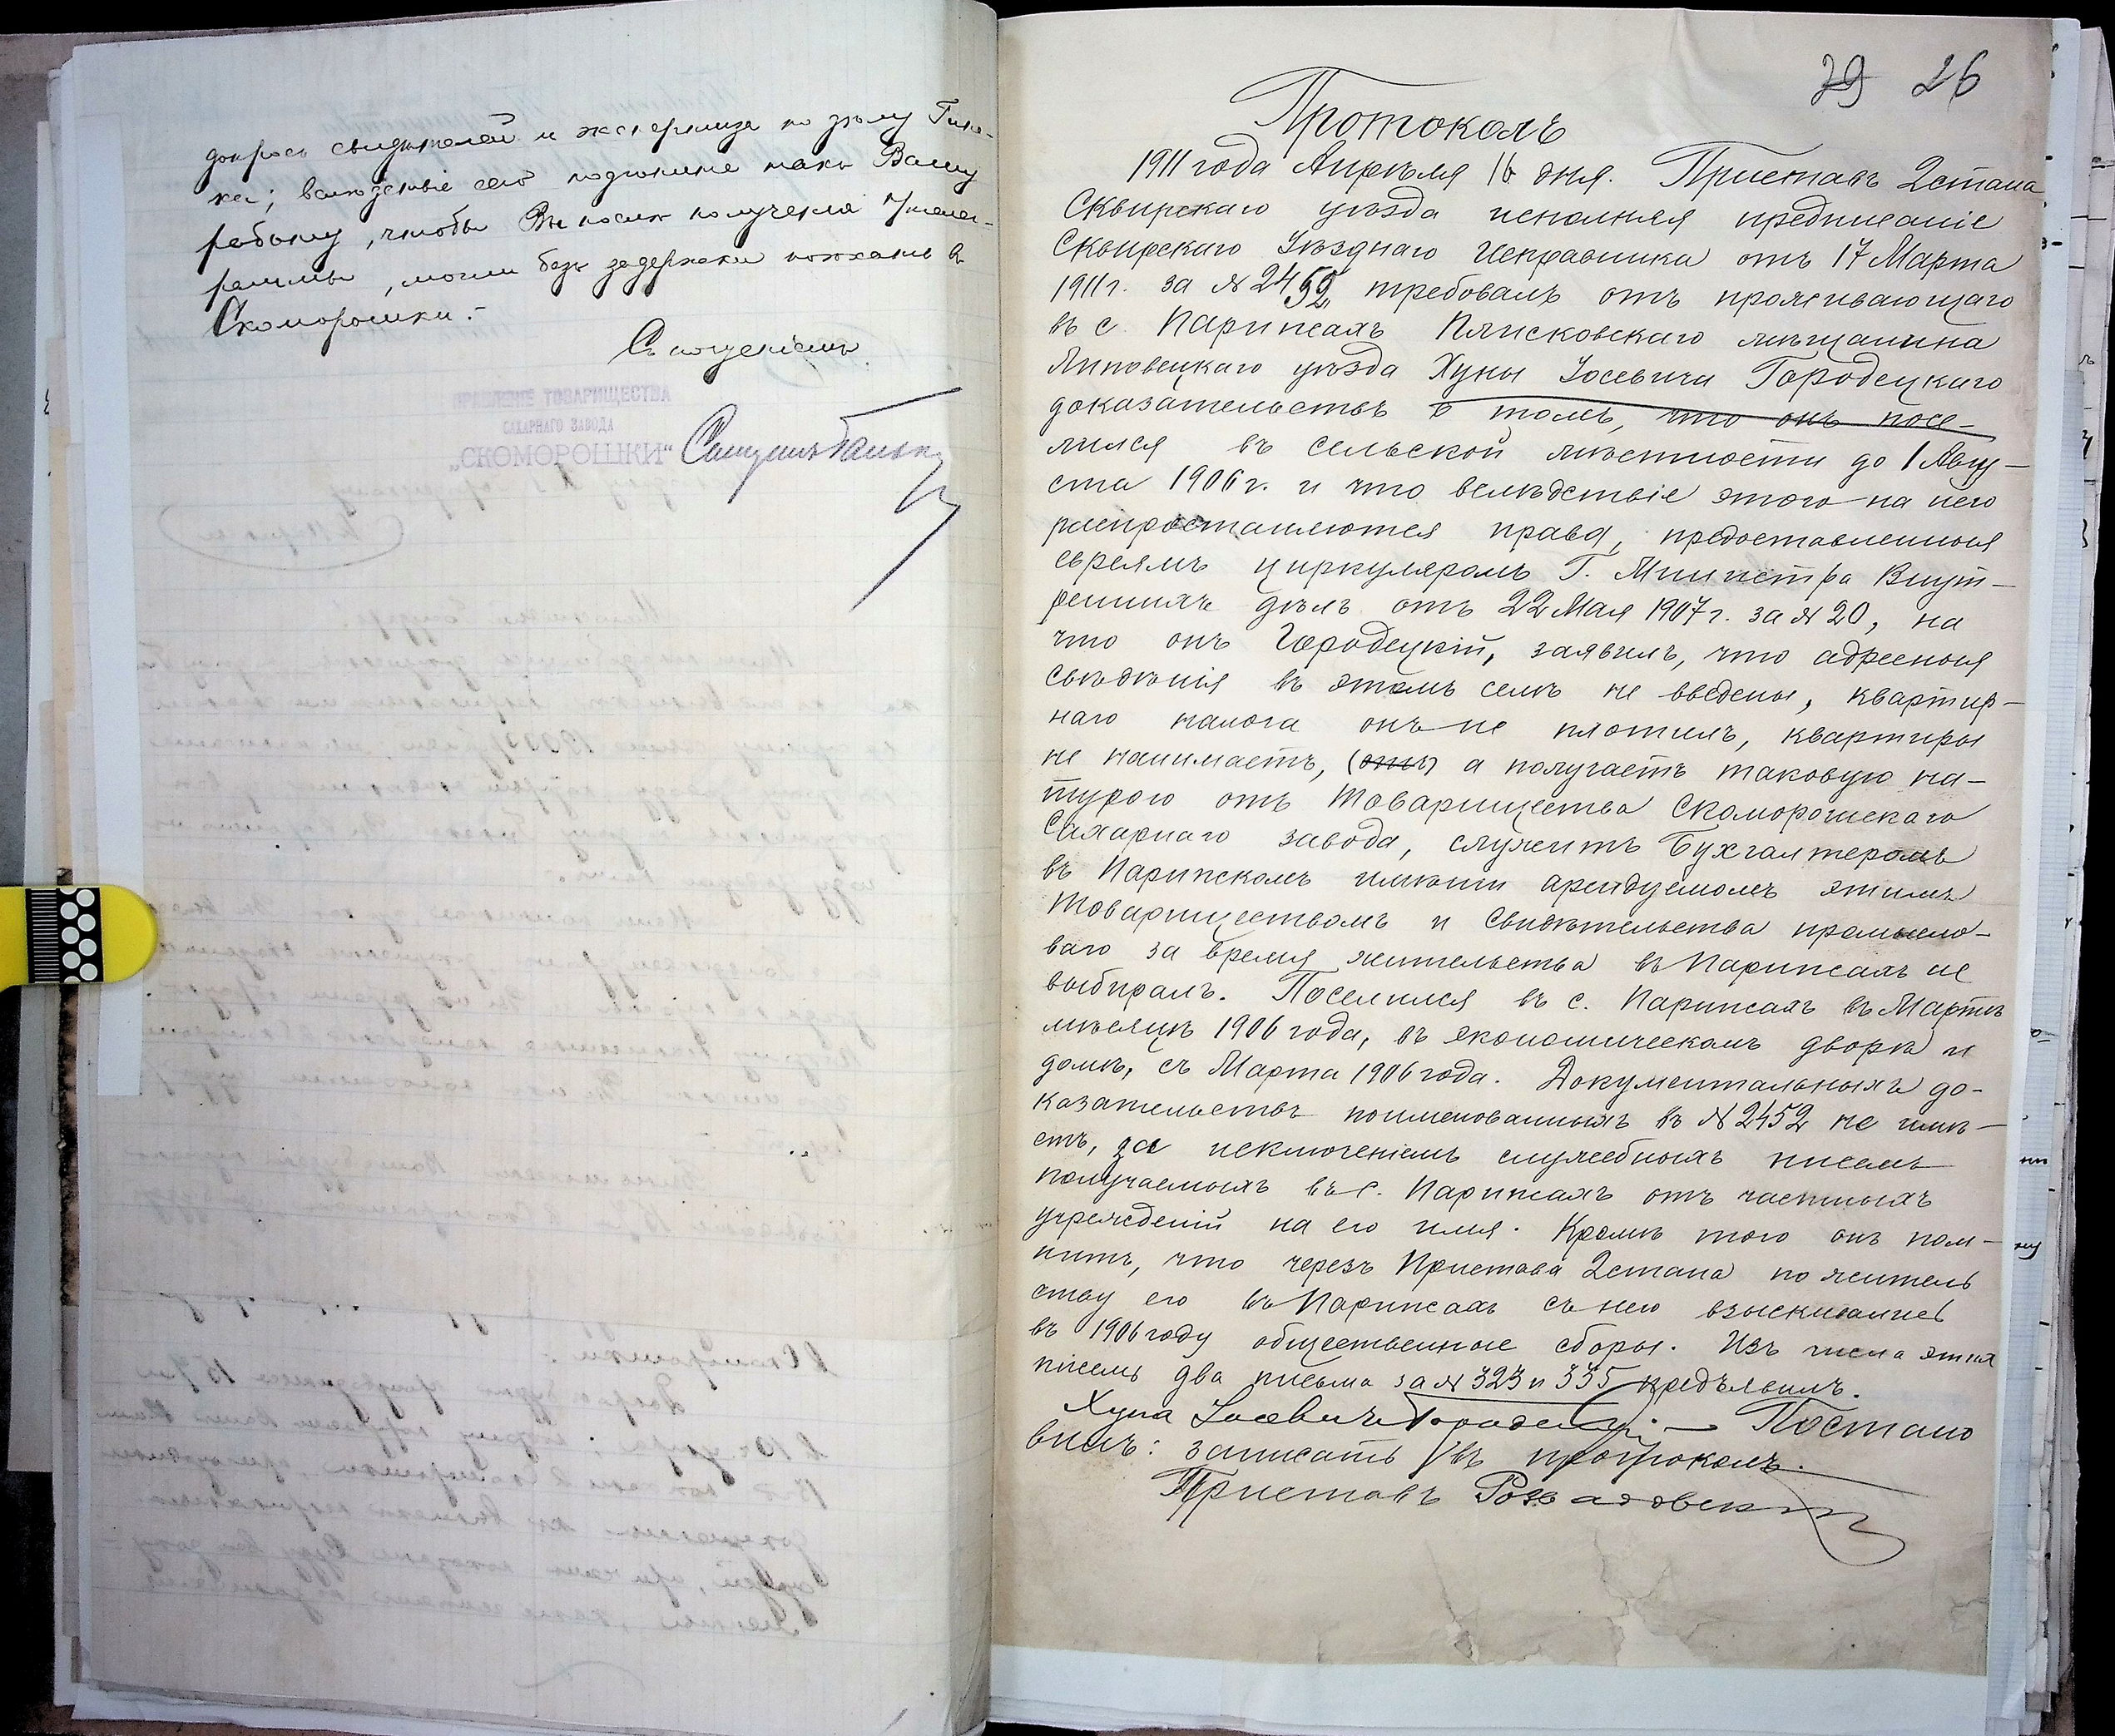 допросъ свидѣтелей и экспертиза по дѣлу Гин-
ка; вслѣдствіе сего подгоните такъ Вашу
работу, чтобы Вы послѣ полученія телег-
раммы, могли безъ задержки поѣхать въ
Скоморошки.-
Съ почтеніемъ
ПРАВЛЕНІЕ ТОВАРИЩЕСТВА
САХАРНАГО ЗАВОДА
„СКОМОРОШКИ“
29 26
Протоколъ
1911 года Апрѣля 16 дня. Приставъ 2 стана
Сквирскаго уѣзда исполняя предписаніе
Сквирскаго Уѣзднаго Исправника отъ 17 Марта
1911 г. за № 2452 требовалъ отъ проживающаго
въ с. Парипсахъ Плисковскаго мѣщанина
Липовецкаго уѣзда Хуны Іосевича Городецкаго
доказательствъ о томъ, что онъ посе-
лился въ сельской мѣстности до 1 Авгу-
ста 1906 г. и что вслѣдствіе этого на него
распространяются права, предоставленныя
евреямъ циркуляромъ Г. Министра Внут-
реннихъ дѣлъ отъ 22 Мая 1907 г. за № 20, на
что онъ Городецкій, заявилъ, что адресныя
свѣдѣнія въ этомъ селѣ не введены, квартир-
наго налога онъ не платилъ, квартиры
не нанимаетъ, (онъ) а получаетъ таковую на-
турою отъ товарищества Скоморошскаго
Сахарнаго завода, служитъ Бухгалтеромъ
въ Парипскомъ имѣніи арендуемомъ этимъ
товариществомъ и свидѣтельства промысло-
ваго за время жительства въ Парипсахъ не
выбиралъ. Поселился въ с. Парипсахъ въ Мартѣ
мѣсяцѣ 1906 года, въ экономическомъ дворѣ и
домѣ, съ Марта 1906 года. Документальныхъ до-
казательствъ поименованныхъ въ № 2452 не имѣ-
етъ, за исключеніемъ служебныхъ писемъ
получаемыхъ въ с. Парипсахъ отъ частныхъ
учрежденій на его имя. Кромѣ того онъ пом-
нитъ, что черезъ Пристава 2 стана по житель
ству его въ Парипсахъ съ него взыскивались
въ 1906 году общественные сборы. Изъ числа этихъ
писемъ два письма за № 323 и 335 предъявилъ.
Хуна Іосевичъ Городецкій. — Постано
вилъ: записать въ протоколъ.
Приставъ